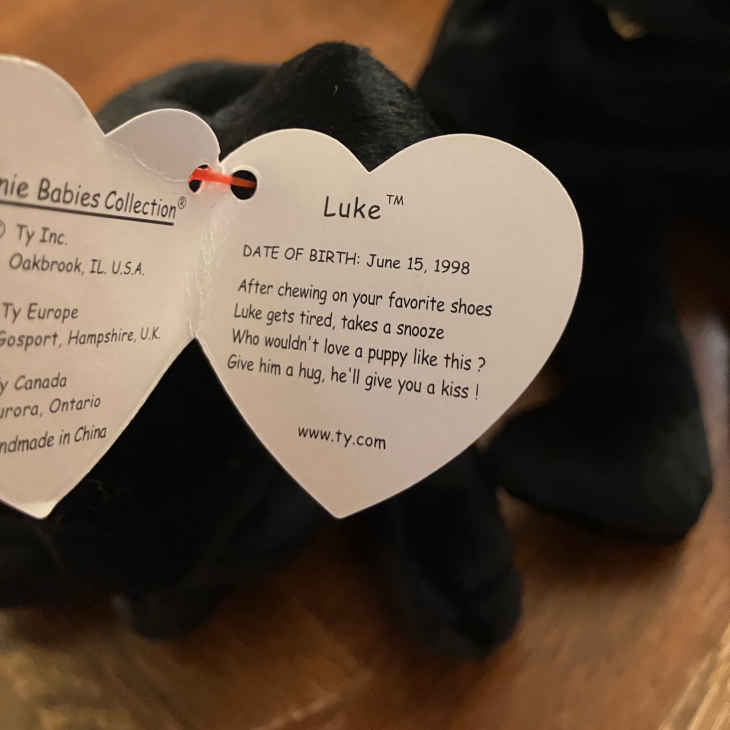 Babies Collection®
Ty Inc.
Oakbrook, IL. U.S.A.
Ty Europe
Gosport, Hampshire, U.K.
Canada
Ontario
in China
Luke™
DATE OF BIRTH: June 15, 1998
After chewing on your favorite shoes
Luke gets tired, takes a snooze
Who wouldn't love a puppy like this ?
Give him a hug, he'll give you a kiss !
www.ty.com